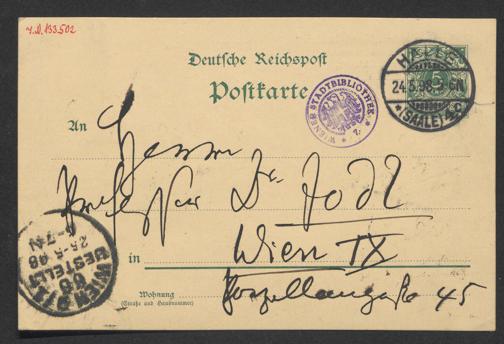 I.N. 133.502
Deutsche Reichspost
Postkarte
HALLE
24.5.98
(SAALE)
5
WIENER STADTBIBLIOTHEK
An
Herrn
Professor Dr Jodl
in Wien IX
Wohnung
(Straße und Hausnummer)
Porzellangaße 45
WIEN
BESTELLT
25.5.98